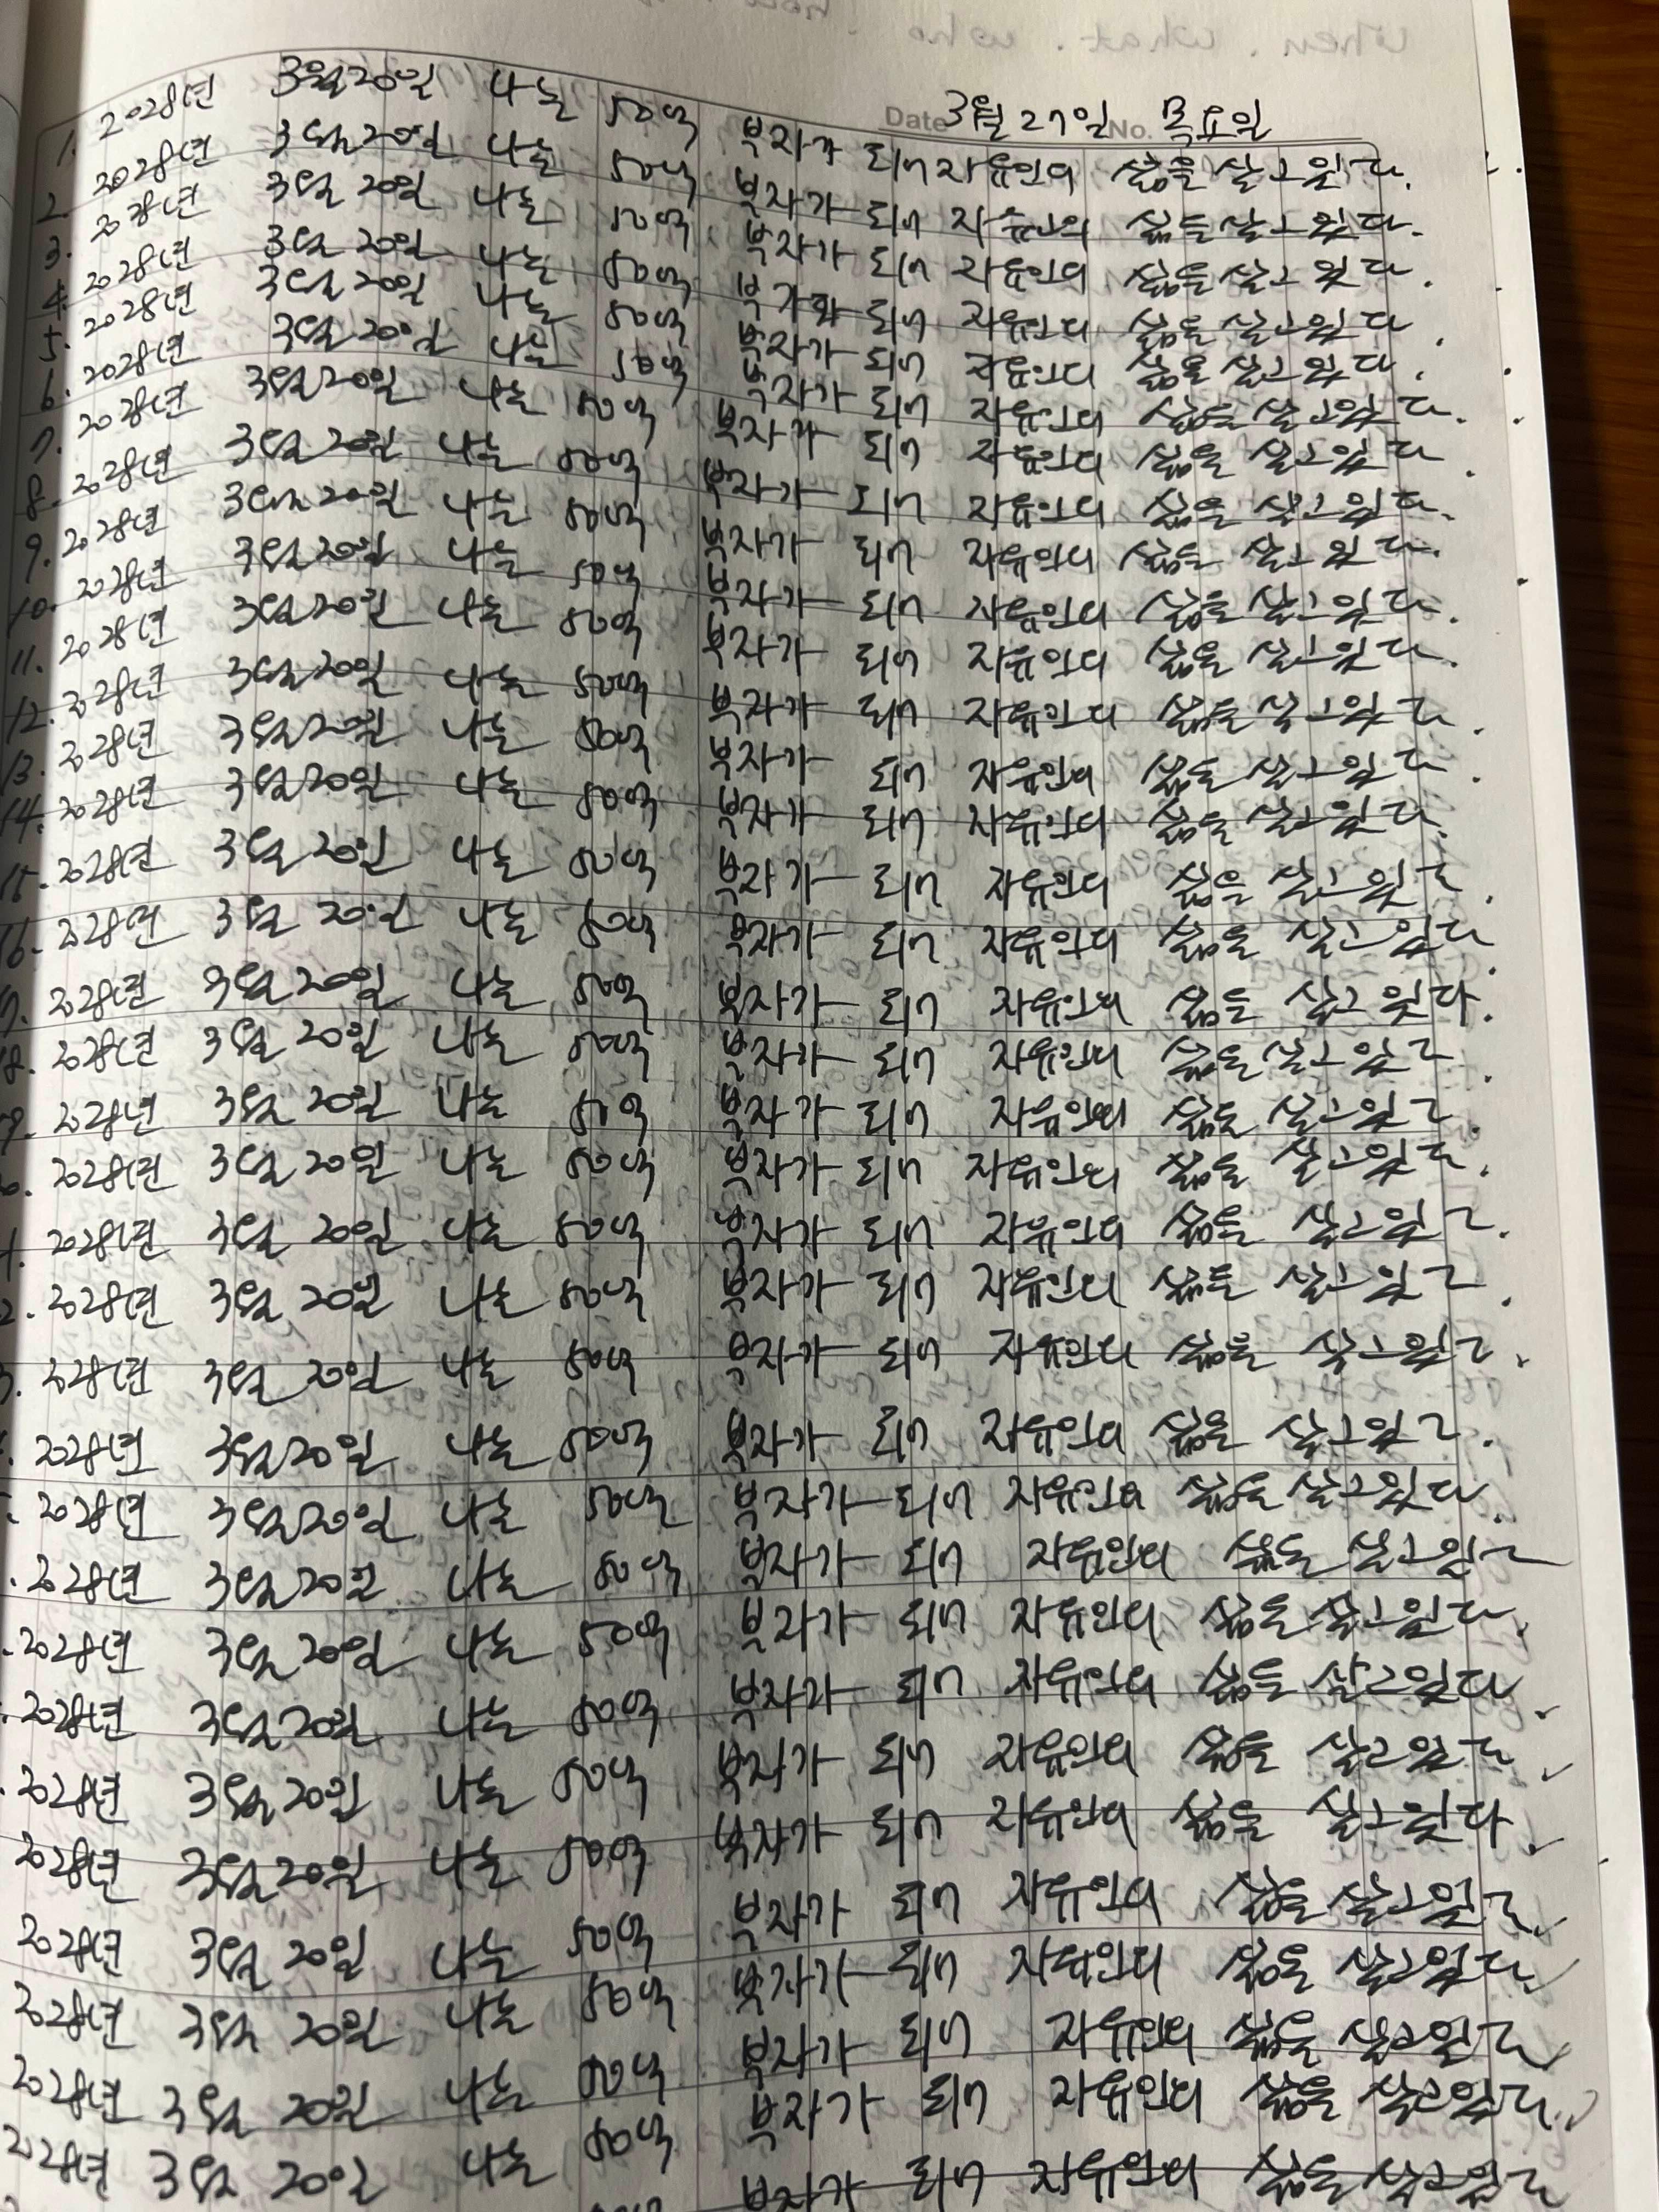 Date 3월 27일 No. 목요일
1. 2028년 3월 20일 나는 50억 부자가 되어 자유인의 삶을 살고있다.
2. 2028년 3월 20일 나는 50억 부자가 되어 자유인의 삶을 살고있다.
3. 2028년 3월 20일 나는 50억 부자가 되어 자유인의 삶을 살고있다.
4. 2028년 3월 20일 나는 50억 부자가 되어 자유인의 삶을 살고있다.
5. 2028년 3월 20일 나는 50억 부자가 되어 자유인의 삶을 살고있다.
6. 2028년 3월 20일 나는 50억 부자가 되어 자유인의 삶을 살고있다.
7. 2028년 3월 20일 나는 50억 부자가 되어 자유인의 삶을 살고있다.
8. 2028년 3월 20일 나는 50억 부자가 되어 자유인의 삶을 살고있다.
9. 2028년 3월 20일 나는 50억 부자가 되어 자유인의 삶을 살고있다.
10. 2028년 3월 20일 나는 50억 부자가 되어 자유인의 삶을 살고있다.
11. 2028년 3월 20일 나는 50억 부자가 되어 자유인의 삶을 살고있다.
12. 2028년 3월 20일 나는 50억 부자가 되어 자유인의 삶을 살고있다.
13. 2028년 3월 20일 나는 50억 부자가 되어 자유인의 삶을 살고있다.
14. 2028년 3월 20일 나는 50억 부자가 되어 자유인의 삶을 살고있다.
15. 2028년 3월 20일 나는 50억 부자가 되어 자유인의 삶을 살고있다.
16. 2028년 3월 20일 나는 50억 부자가 되어 자유인의 삶을 살고있다.
7. 2028년 3월 20일 나는 50억 부자가 되어 자유인의 삶을 살고있다.
8. 2028년 3월 20일 나는 50억 부자가 되어 자유인의 삶을 살고있다.
9. 2028년 3월 20일 나는 50억 부자가 되어 자유인의 삶을 살고있다.
0. 2028년 3월 20일 나는 50억 부자가 되어 자유인의 삶을 살고있다.
1. 2028년 3월 20일 나는 50억 부자가 되어 자유인의 삶을 살고있다.
2. 2028년 3월 20일 나는 50억 부자가 되어 자유인의 삶을 살고있다.
3. 2028년 3월 20일 나는 50억 부자가 되어 자유인의 삶을 살고있다.
2028년 3월 20일 나는 50억 부자가 되어 자유인의 삶을 살고있다.
2028년 3월 20일 나는 50억 부자가 되어 자유인의 삶을 살고있다.
2028년 3월 20일 나는 50억 부자가 되어 자유인의 삶을 살고있다
2028년 3월 20일 나는 50억 부자가 되어 자유인의 삶을 살고있다.
2028년 3월 20일 나는 50억 부자가 되어 자유인의 삶을 살고있다.
2028년 3월 20일 나는 50억 부자가 되어 자유인의 삶을 살고있다.
2028년 3월 20일 나는 50억 부자가 되어 자유인의 삶을 살고있다.
2028년 3월 20일 나는 50억 부자가 되어 자유인의 삶을 살고있다.
2028년 3월 20일 나는 50억 부자가 되어 자유인의 삶을 살고있다.
2028년 3월 20일 나는 50억 부자가 되어 자유인의 삶을 살고있다.
2028년 3월 20일 나는 50억 부자가 되어 자유인의 삶을 살고있다.
50억 부자가 되어 자유인의 삶을 살고있다